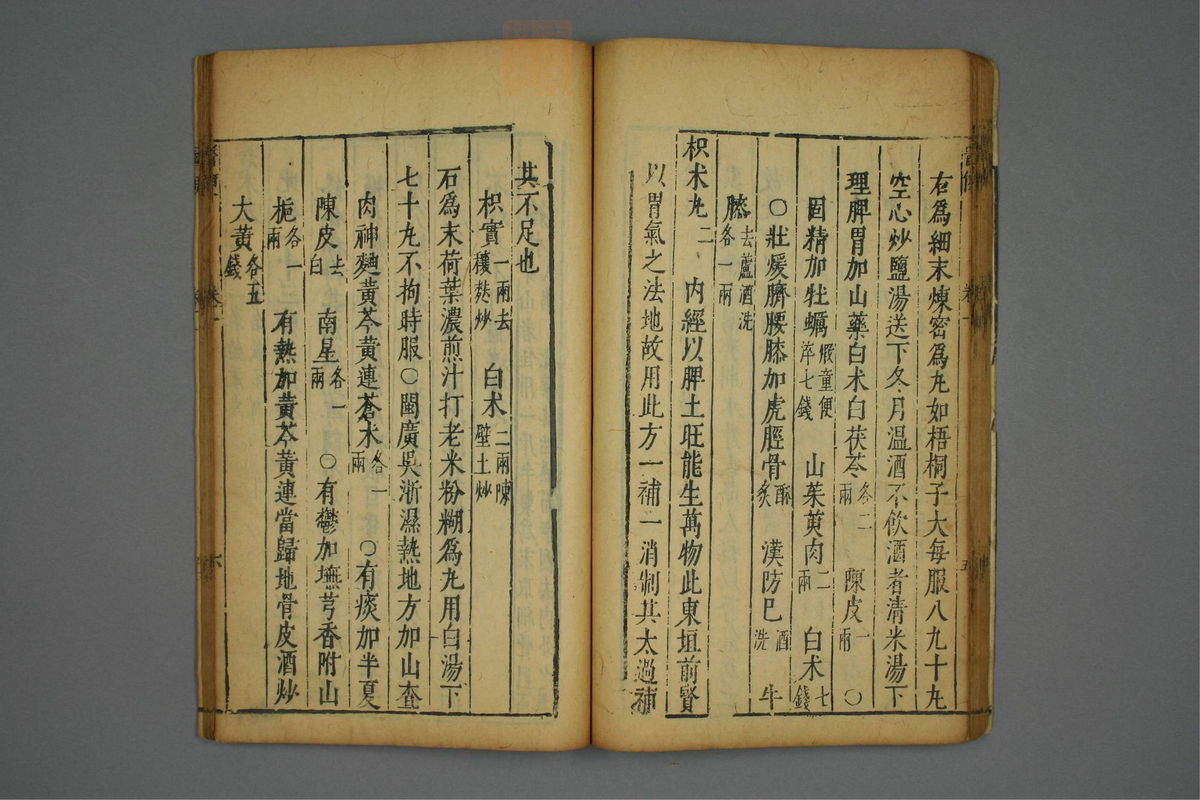 右爲細末煉密爲丸如梧桐子大每服八九十丸
空心炒鹽湯送下冬月温酒不飲酒者清米湯下
理脾胃加山藥白术白茯苓各二兩 陳皮一兩 〇
固精加牡蠣煅童便淬七錢 山茱萸肉二兩 白术七錢
〇壯煖臍腰膝加虎脛骨酥炙 漢防巳酒洗 牛
膝去蘆酒洗各一兩
枳术丸二 内經以脾土旺能生萬物此東垣前賢
以胃氣之法地故用此方一補一消制其太過補
其不足也
枳實一兩去穰麩炒 白术二兩陳壁土炒
石爲末荷葉濃煎汁打老米粉糊爲丸用白湯下
七十丸不拘時服〇閩廣吳浙濕熱地方加山查
肉神麯黄芩黄連蒼术各一兩 〇有痰加半夏
陳皮去白 南星各一兩 〇有鬱加撫芎香附山
梔各一兩 有熱加黄芩黄連當歸地骨皮酒炒
大黄各五錢